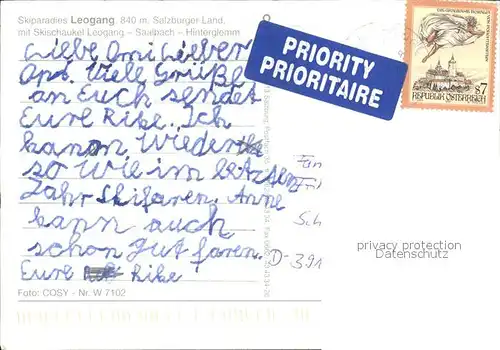 Skiparadies Leogang, 840 m, Salzburger Land,
mit Skischaukel Leogang – Saalbach – Hinterglemm
Liebe Omi Lieber
Opi. Viele Grüße
an Euch sendet
Eure Rike. Ich
kann Wieder
so wie im letzten
Jahr Skifaren. Anne
kann auch
schon gut faren.
Eure Rike
Foto: COSY - Nr. W 7102
PRIORITY
PRIORITAIRE
s7
REPUBLIK ÖSTERREICH
Fam
D-391
privacy protection
Datenschutz